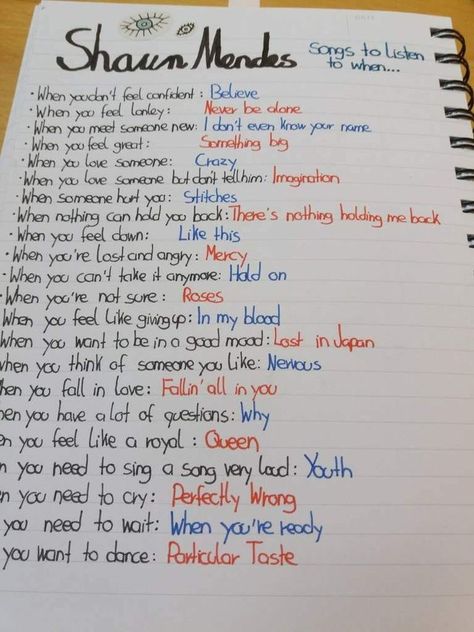 Shawn Mendes
Songs to listen
to when...
· When you don't feel confident : Believe
· When you feel lonley: Never be alone
· When you meet someone new: I don't even know your name
· When you feel great: Something big
· When you love someone: Crazy
· When you love someone but don't tell him: Imagination
· When someone hurt you: Stitches
· When nothing can hold you back: There's nothing holding me back
· When you feel down: Like this
· When you're lost and angry: Mercy
· When you can't take it anymore: Hold on
· When you're not sure: Roses
When you feel like giving up: In my blood
When you want to be in a good mood: Lost in Japan
hen you think of someone you like: Nervous
hen you fall in love: Fallin' all in you
en you have a lot of questions: Why
en you feel like a royal : Queen
n you need to sing a song very loud: Youth
n you need to cry: Perfectly Wrong
you need to wait: When you're ready
you want to dance: Particular Taste